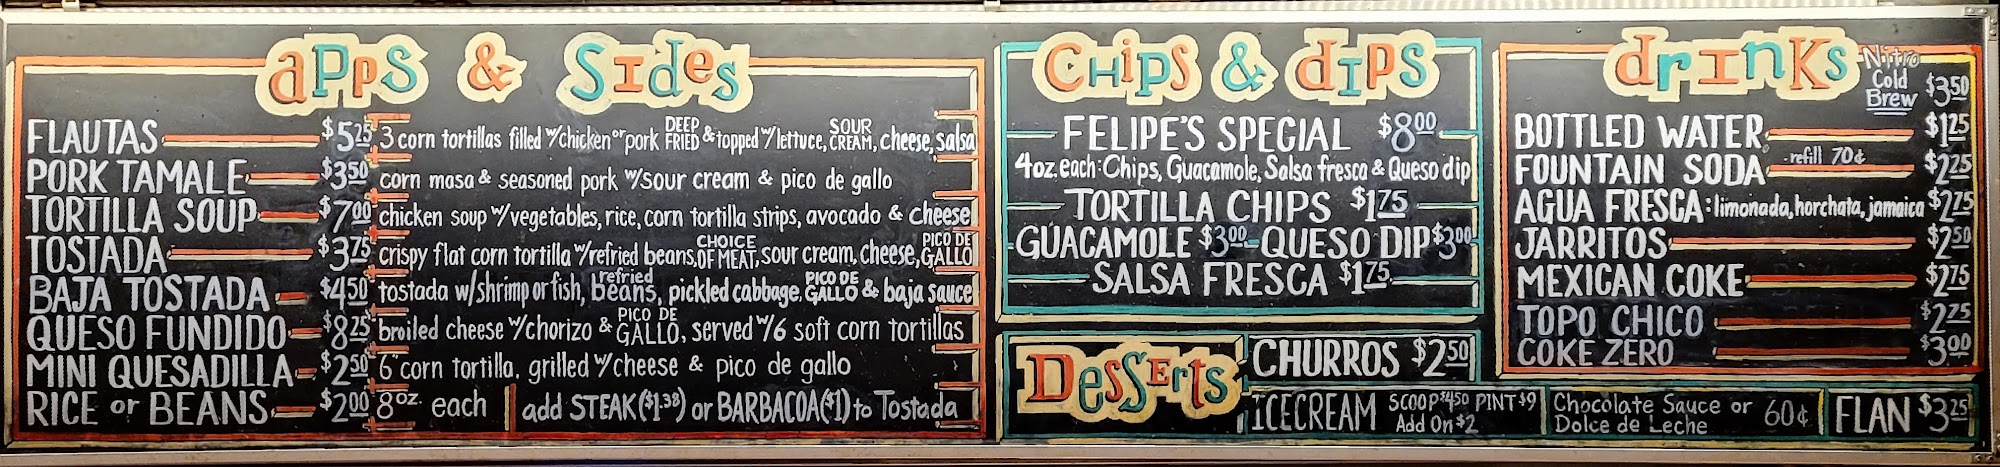 apps & sides
FLAUTAS $5.25 3 corn tortillas filled w/chicken or pork DEEP FRIED & topped w/lettuce, SOUR CREAM, cheese, salsa
PORK TAMALE $3.50 corn masa & seasoned pork w/sour cream & pico de gallo
TORTILLA SOUP $7.00 chicken soup w/vegetables, rice, corn tortilla strips, avocado & cheese
TOSTADA $3.75 crispy flat corn tortilla w/refried beans, CHOICE OF MEAT, sour cream, cheese, PICO DE GALLO
BAJA TOSTADA $4.50 tostada w/shrimp or fish, refried beans, pickled cabbage, PICO DE GALLO & baja sauce
QUESO FUNDIDO $8.25 broiled cheese w/chorizo & PICO DE GALLO, served w/6 soft corn tortillas
MINI QUESADILLA $2.50 6" corn tortilla, grilled w/cheese & pico de gallo
RICE or BEANS $2.00 8oz. each add STEAK ($1.38) or BARBACOA ($1) to Tostada
Chips & dips
FELIPE'S SPECIAL $8.00
4oz. each: Chips, Guacamole, Salsa fresca & Queso dip
TORTILLA CHIPS $1.75
GUACAMOLE $3.00 QUESO DIP $3.00
SALSA FRESCA $1.75
Desserts
CHURROS $2.50
ICECREAM SCOOP $4.50 PINT $9
Add On $2
Chocolate Sauce or
Dolce de Leche 60¢
FLAN $3.25
drinks
Nitro
Cold
Brew $3.50
BOTTLED WATER $1.25
FOUNTAIN SODA - refill 70¢ $2.25
AGUA FRESCA: limonada, horchata, jamaica $2.75
JARRITOS $2.50
MEXICAN COKE $2.75
TOPO CHICO $2.75
COKE ZERO $3.00